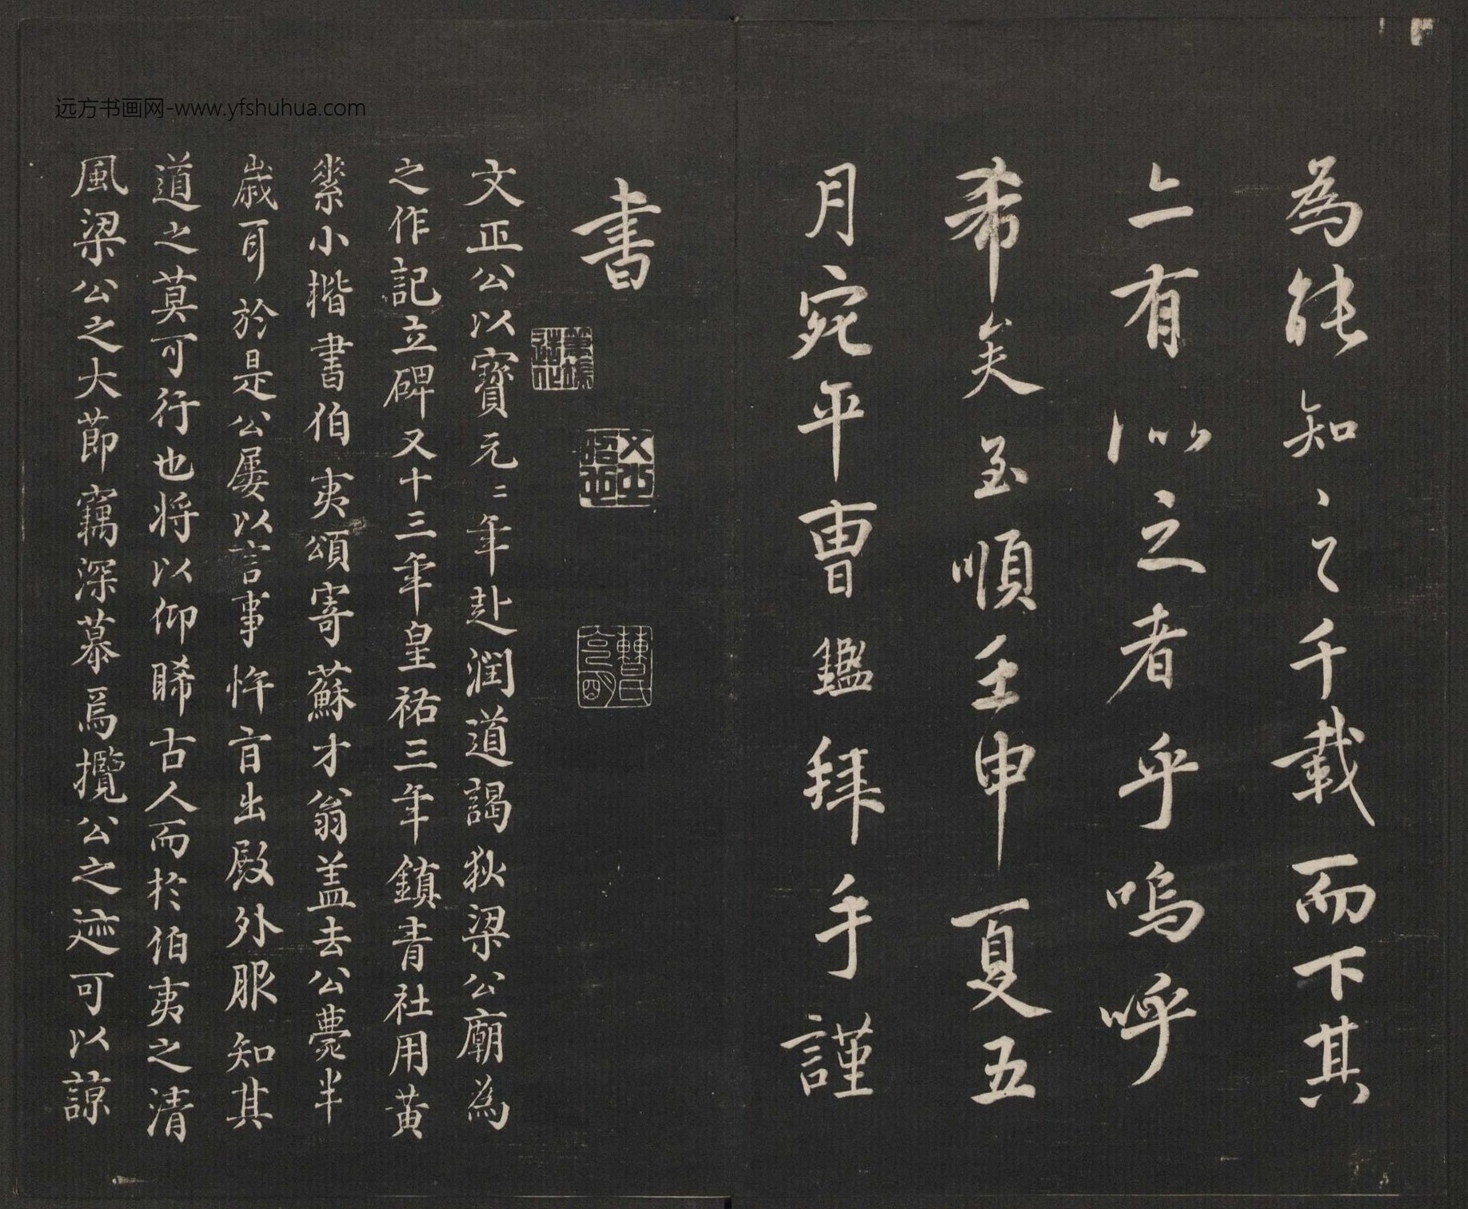 為能知知之千載而下其
亦有似之者乎嗚呼
希矣至順壬申夏五
月宛平曹鑑拜手謹
書
文正公以寶元二年赴潤道謁狄梁公廟為
之作記立碑又十三年皇祐三年鎮青社用黃
素小楷書伯夷頌寄蘇才翁盖去公薨半
歲耳於是公屢以言事忤旨出殿外服知其
道之莫可行也将以仰睎古人而於伯夷之清
風梁公之大節竊深慕焉攬公之迹可以諒
远方书画网-www.yfshuhua.com